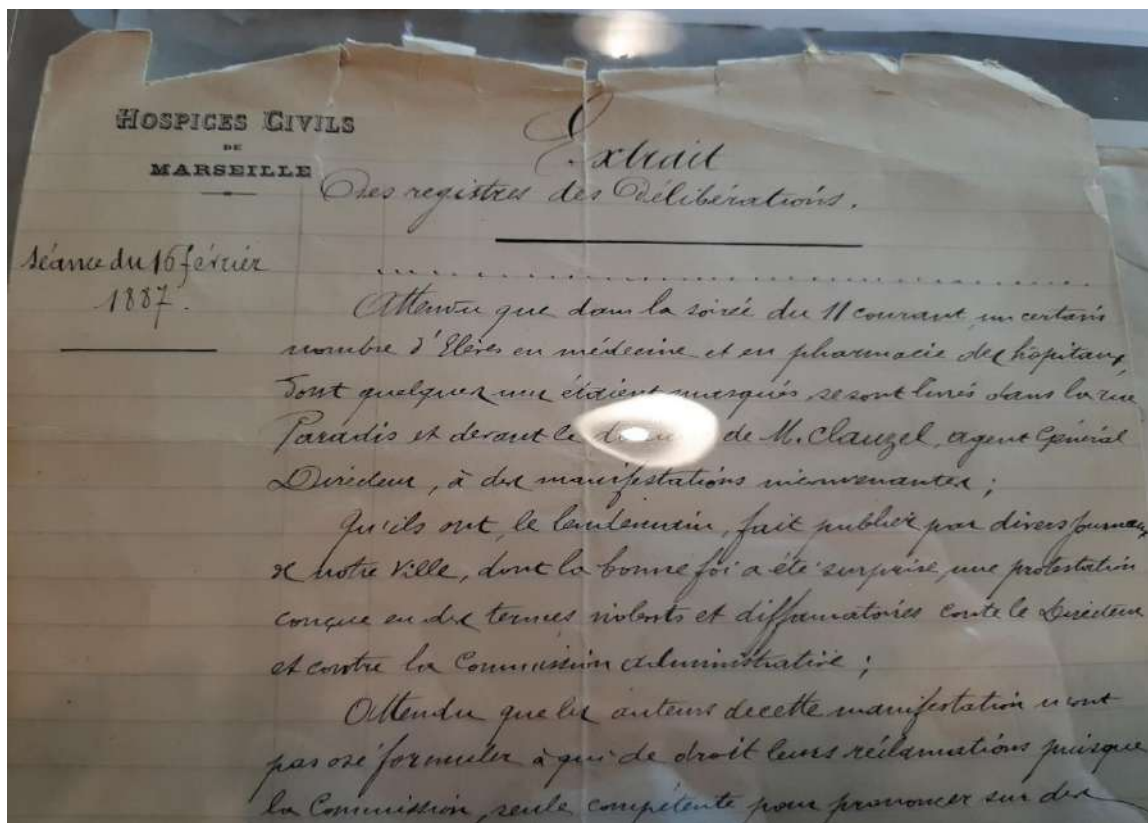 HOSPICES CIVILS
DE
MARSEILLE
Extrait
Des registres des Délibérations.
Séance du 16 février
1887.
Attendu que dans la soirée du 11 courant, un certain
nombre d'Elèves en médecine et en pharmacie des hôpitaux,
dont quelques uns étaient masqués, se sont livrés dans la rue
Paradis et devant le de M. Clauzel, agent Général
Directeur, à des manifestations inconvenantes ;
Qu'ils ont, le lendemain, fait publier par divers journaux
de notre ville, dont la bonne foi a été surprise, une protestation
conçue en des termes violents et diffamatoires contre le Directeur
et contre la Commission administrative ;
Attendu que les auteurs de cette manifestation n'ont
pas osé formuler à qui de droit leurs réclamations puisque
la Commission, seule compétente pour prononcer sur des